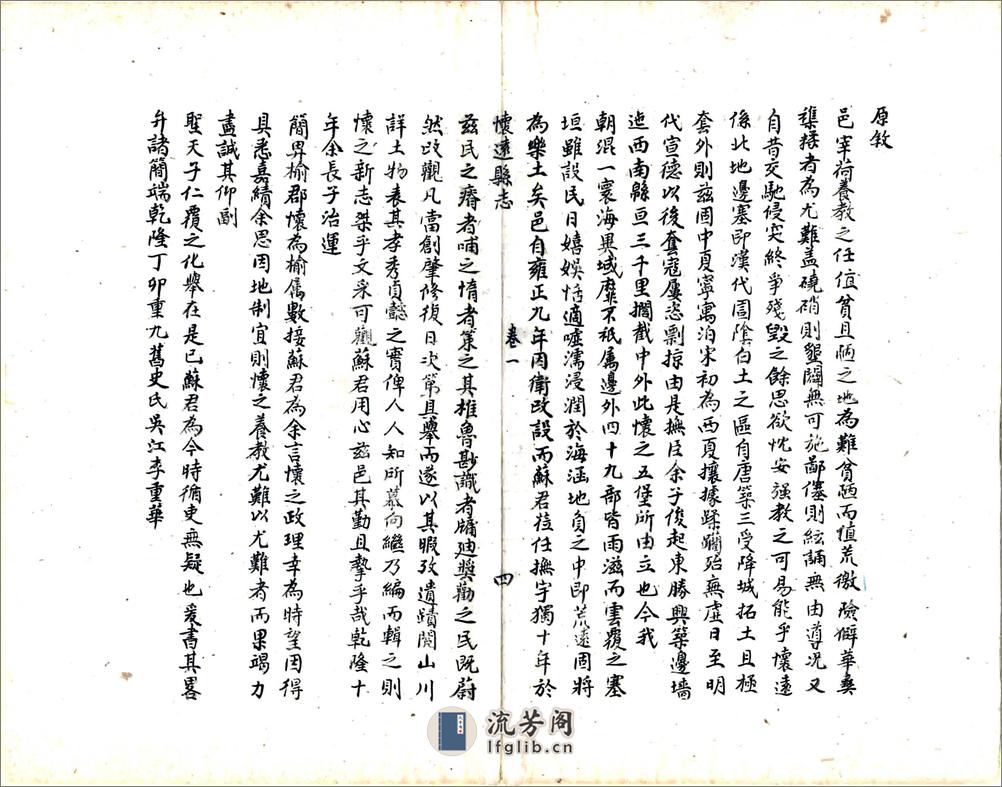 原敘
邑宰荷養教之任值貧且陋之地為難貧陋而值荒徼險僻華彝
雜揉者為尤難蓋磽硝則墾闢無可施鄙僿則絃誦無由導況又
自昔交馳侵突終爭殘毀之餘思欲忱安強教之可易能乎懷遠
係北地邊塞即漢代圁陰白土之區自唐築三受降城拓土且極
套外則茲固中夏寧寓泊宋初為西夏攘據蹂躪殆無虛日至明
代宣德以後套寇屢恣剽掠由是撫臣余子俊起東勝興築邊墻
迤西南緜亘三千里擱截中外此懷之五堡所由立也今我
朝混一寰海異域靡不祇屬邊外四十九部皆雨滋而雲覆之塞
垣雖設民日嬉娛恬適噓濡浸潤於海涵地負之中即荒遠固將
為樂土矣邑自雍正九年因衛改設而蘇君荘任撫字獨十年於
懷遠縣志
卷一
四
茲民之瘠者哺之惰者策之其椎魯尠識者牖廸與勸之民既蔚
然改觀凡當創肇修復日次第且舉而遂以其暇攷遺蹟閱山川
詳土物表其孝秀貞懿之實俾人人知所慕向繼乃編而輯之則
懷之新志桀乎文采可觀蘇君用心茲邑其勤且摯乎哉乾隆十
年余長子治運
簡畀榆郡懷為榆屬數接蘇君為余言懷之政理幸為時望因得
具悉嘉績余思因地制宜則懷之養教尤難以尤難者而果竭力
盡誠其仰副
聖天子仁覆之化舉在是已蘇君為今時循吏無疑也爰書其畧
弁諸簡端乾隆丁卯重九舊史氏吳江李重華
流芳阁
lfglib.cn